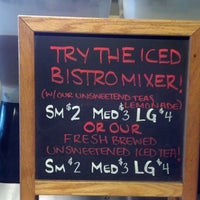 TRY THE ICED
BISTRO MIXER!
(W/OUR UNSWEETEND TEAS
LEMONADE)
SM $2 MED $3 LG $4
OR OUR
FRESH BREWED
UNSWEETENED ICED TEA!
SM $2 MED $3 LG $4